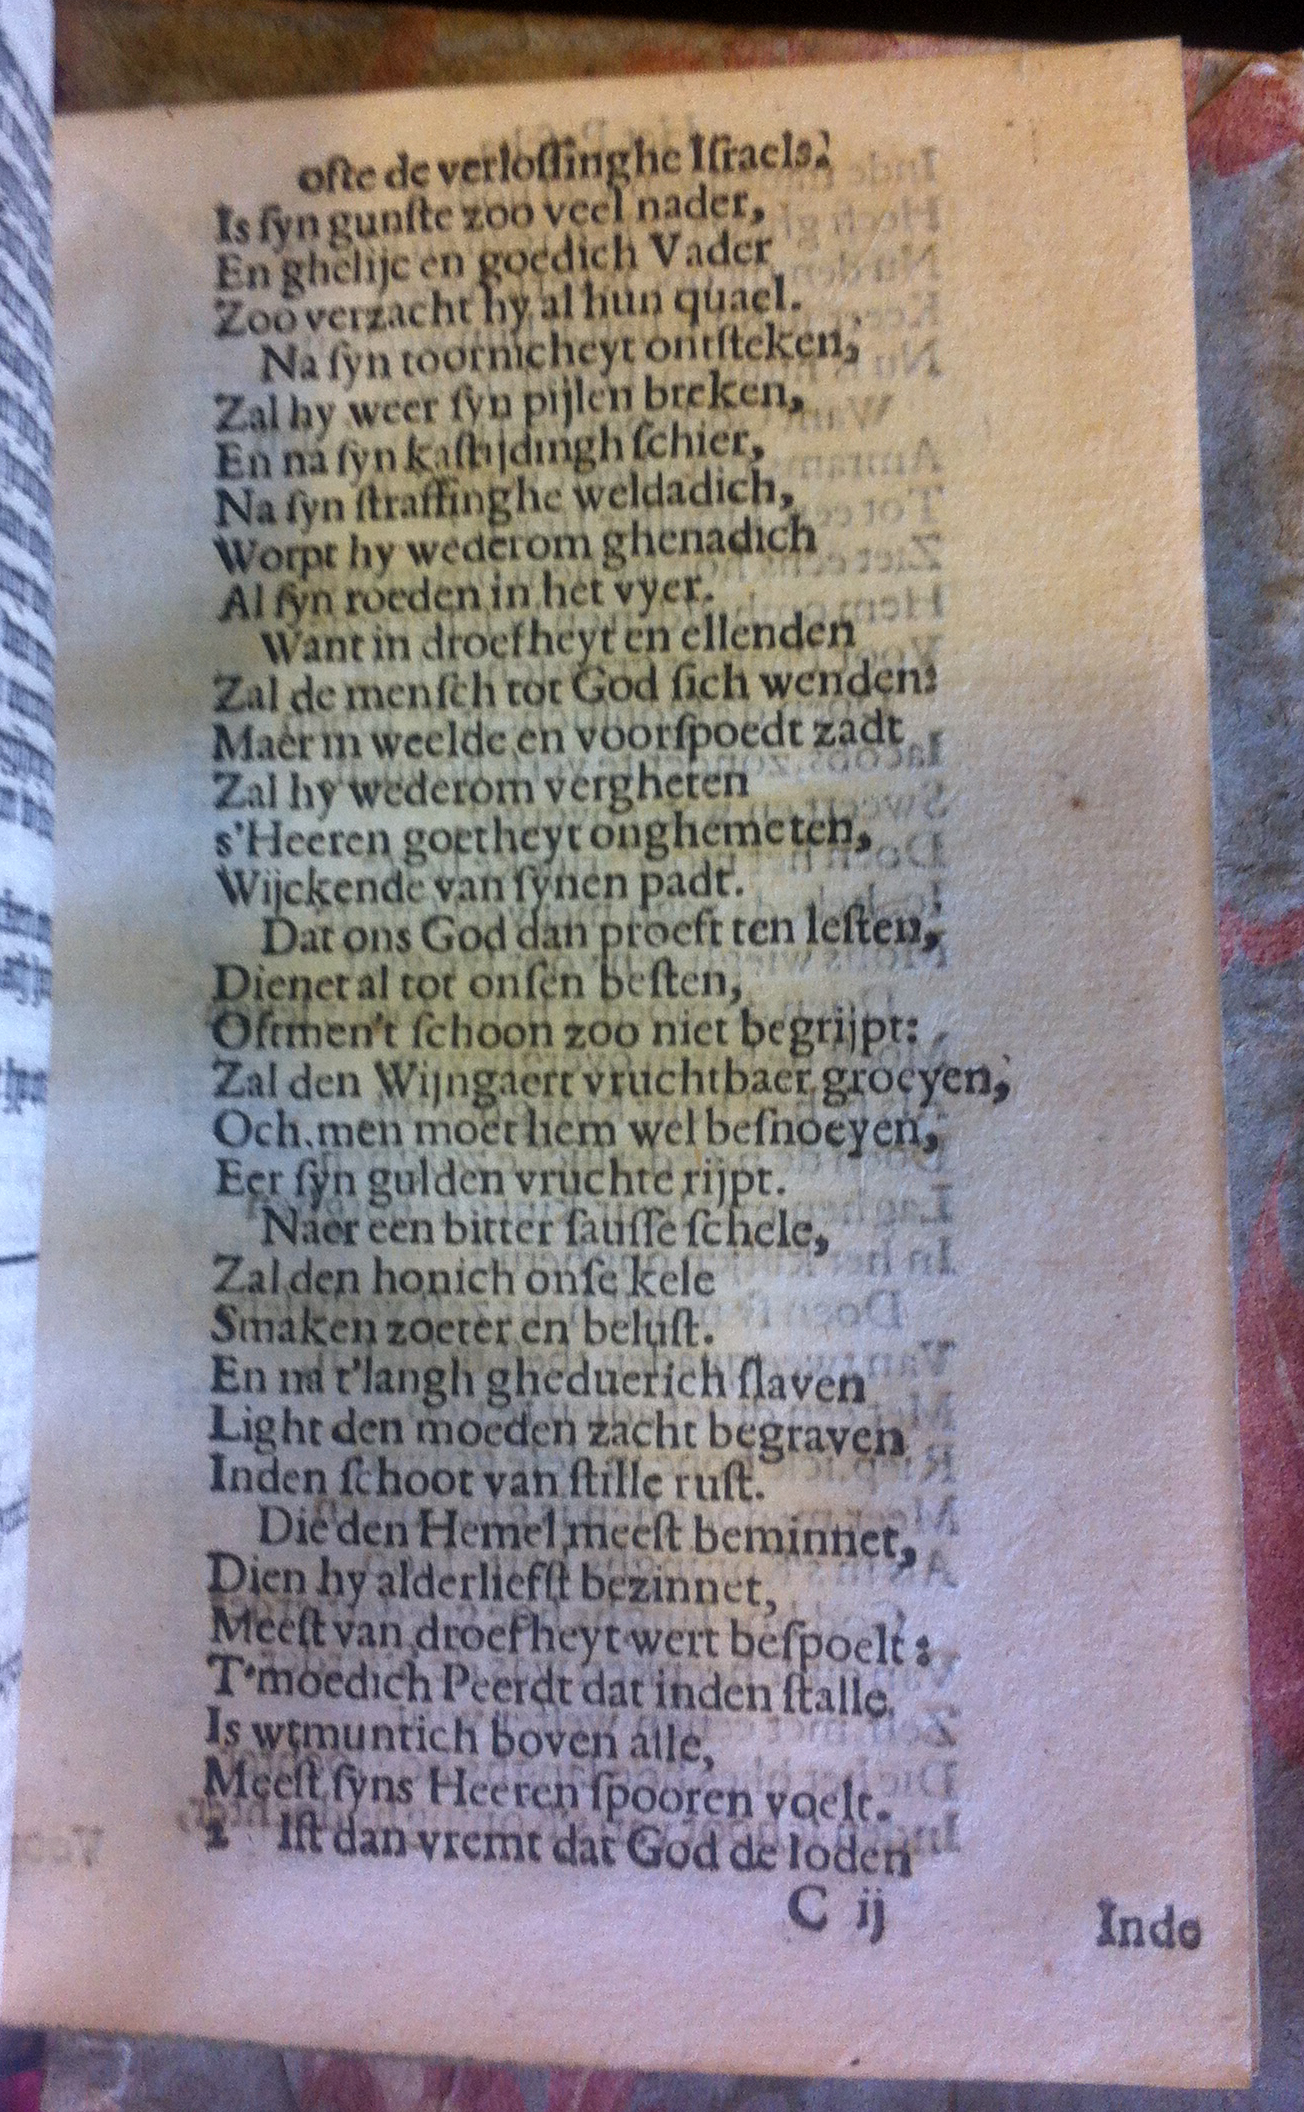 ofte de verloſſinghe Iſraels.
Is ſyn gunſte zoo veel nader,
En ghelijc en goedich Vader
Zoo verzacht hy al hun quael.
Na ſyn toornicheyt ontſteken,
Zal hy weer ſyn pijlen breken,
En na ſyn kaſtijdingh ſchier,
Na ſyn ſtraffinghe weldadich,
Worpt hy wederom ghenadich
Al ſyn roeden in het vyer.
Want in droefheyt en ellenden
Zal de menſch tot God ſich wenden:
Maer in weelde en voorſpoedt zadt
Zal hy wederom vergheten
s'Heeren goetheyt onghemeten,
Wijckende van ſynen padt.
Dat ons God dan proeft ten leſten,
Dienet al tot onſen beſten,
Oftmen't ſchoon zoo niet begrijpt:
Zal den Wijngaert vruchtbaer groeyen,
Och, men moet hem wel beſnoeyen,
Eer ſyn gulden vruchte rijpt.
Naer een bitter ſauſſe ſchele,
Zal den honich onſe kele
Smaken zoeter en beluſt.
En na t'langh gheduerich ſlaven
Light den moeden zacht begraven
Inden ſchoot van ſtille ruſt.
Die den Hemel meeſt beminnet,
Dien hy alderliefſt bezinnet,
Meeſt van droefheyt wert beſpoelt:
T'moedich Peerdt dat inden ſtalle
Is wtmuntich boven alle,
Meeſt ſyns Heeren ſpooren voelt.
2 Iſt dan vremt dat God de Ioden
C ij
Inde